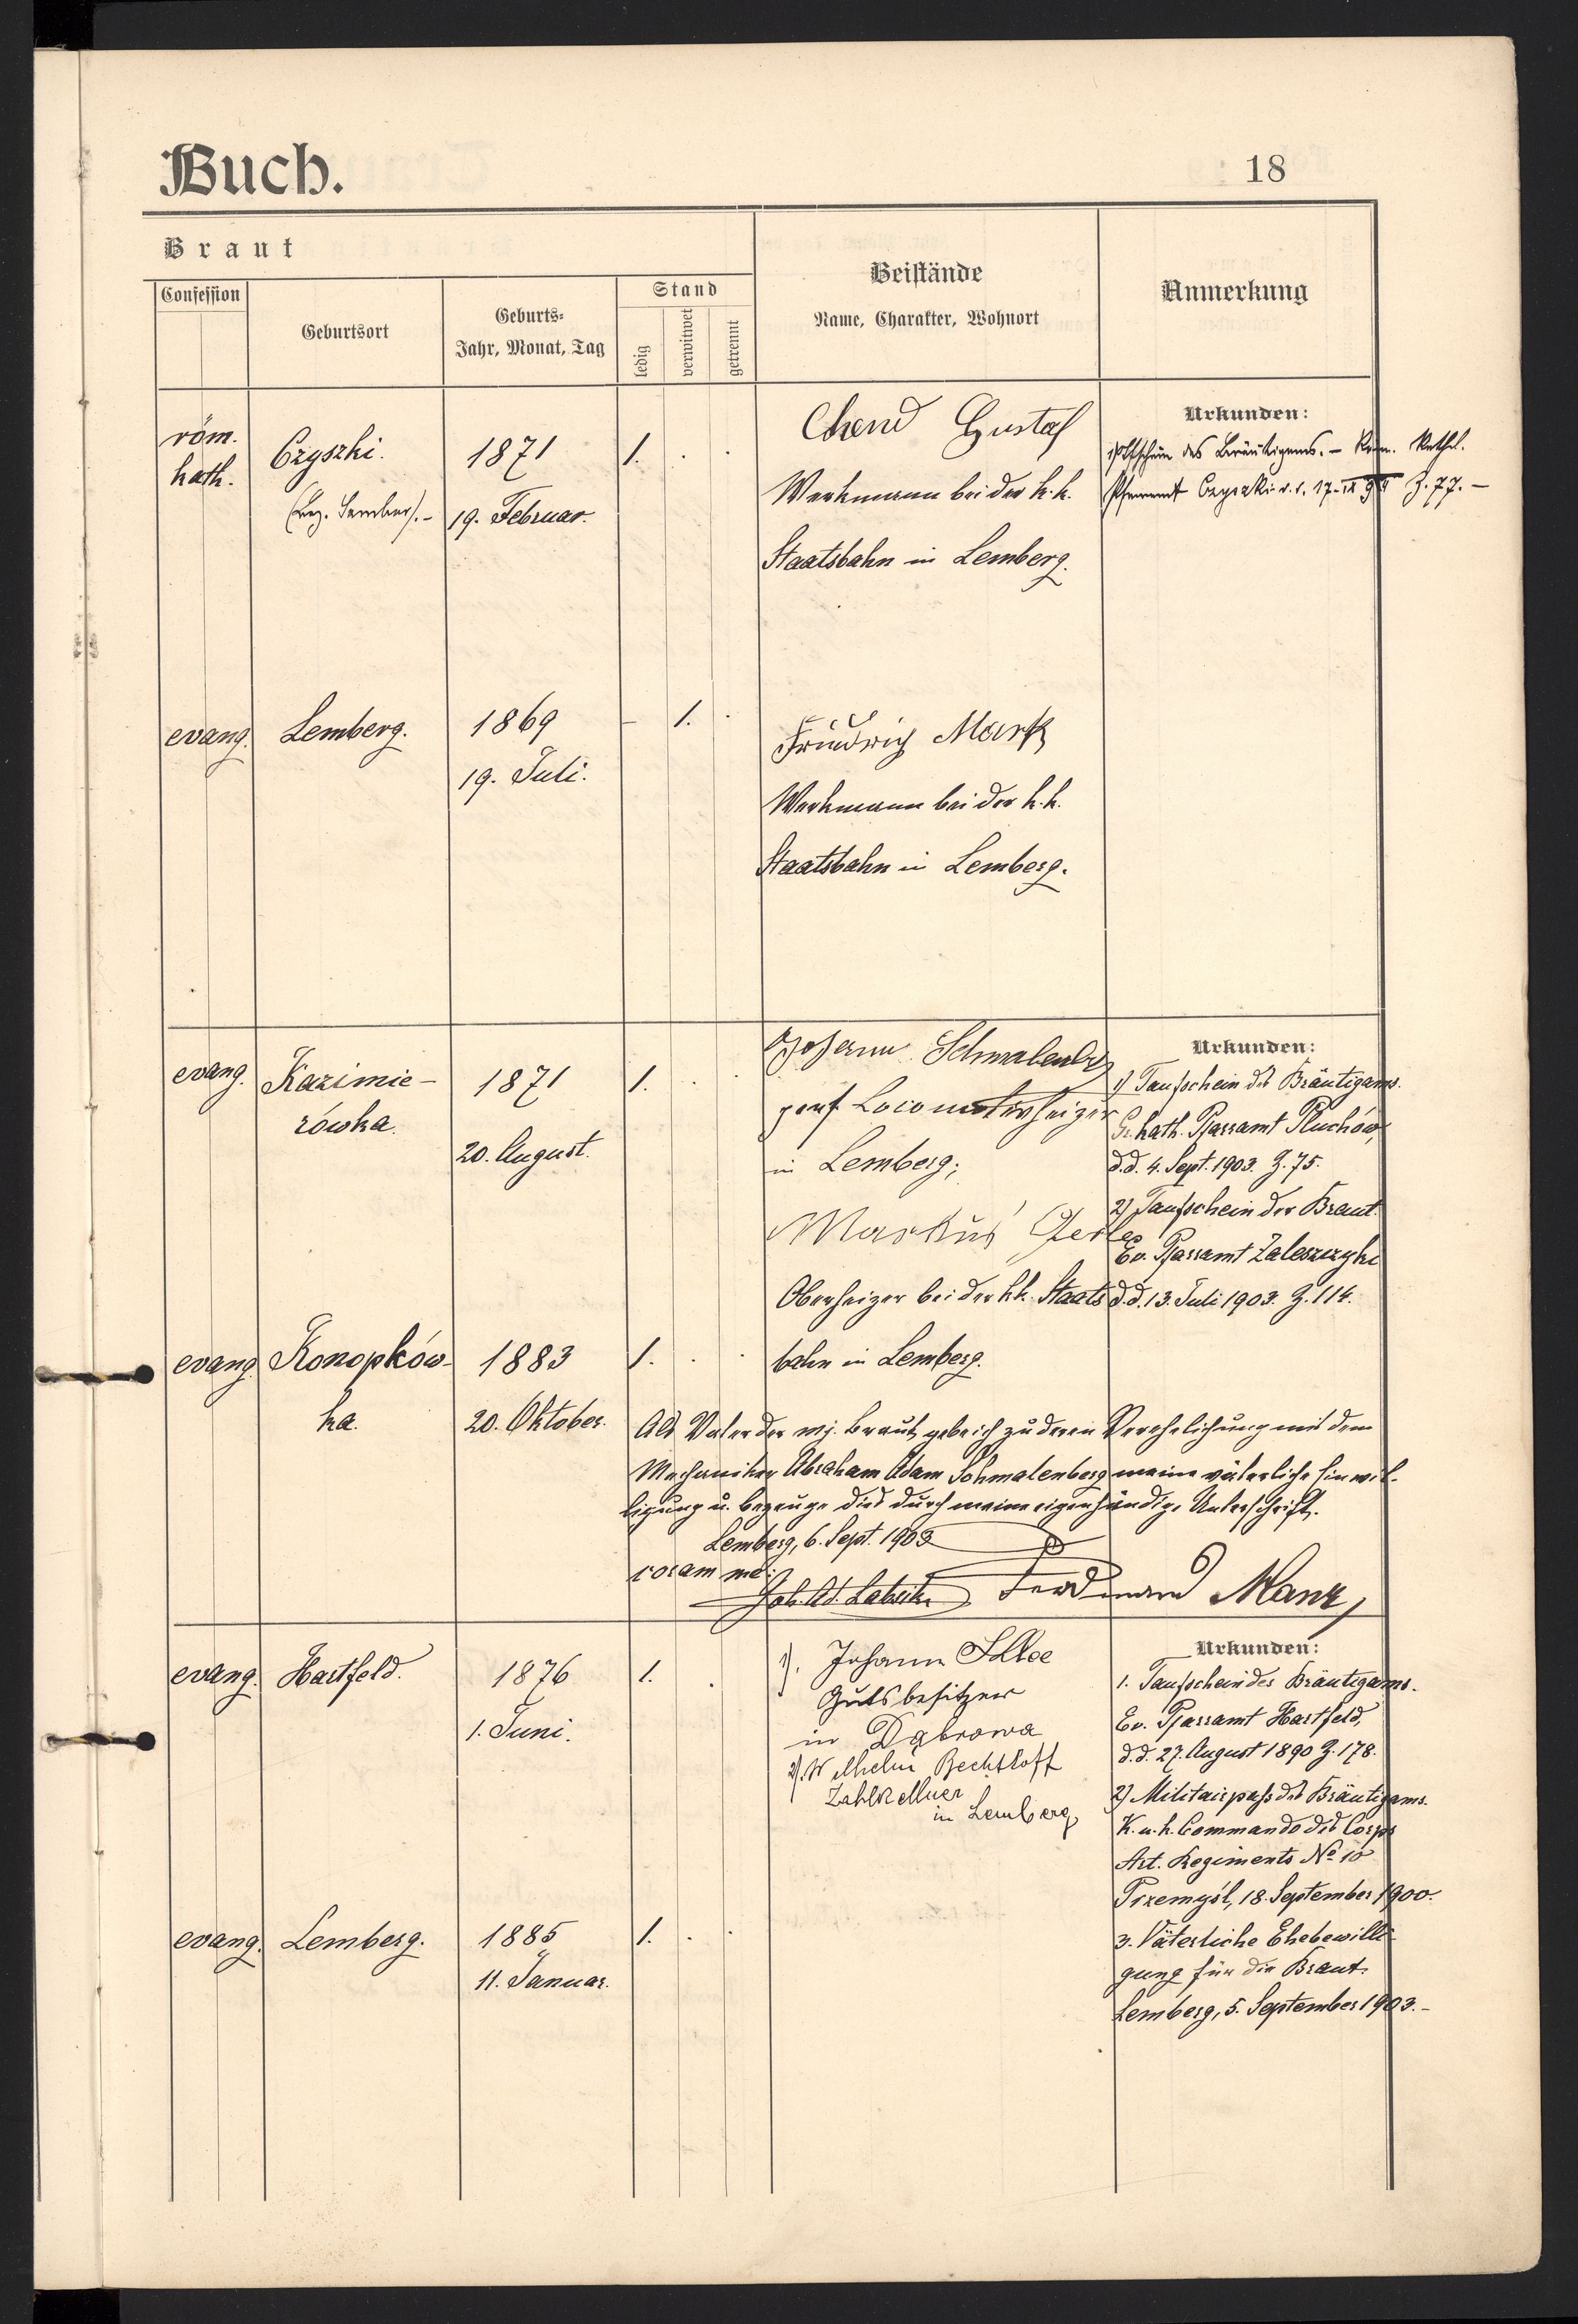 Buch.
18
Braut
Beistände
Name, Charakter, Wohnort
Anmerkung
Confession
Geburtsort
Geburts-
Jahr, Monat, Tag
Stand
ledig
verwitwet
getrennt
röm.
kath.
Czyszki.
1871
19. Februar.
1.
Gustaf
Werkmann bei der k. k.
Staatsbahn in Lemberg.
Urkunden:
des Bräutigams. — Röm. Kathol.
Pfarramt Czyszki Z. 77. —
evang.
Lemberg.
1869
19. Juli.
–
1.
Friedrich Mark
Werkmann bei der k. k.
Staatsbahn in Lemberg.
evang.
Kazimie-
rówka.
1871
20. August.
1.
Johann Schmalenberg
Locomotivheizer
in Lemberg;
Markus Gerle
Oberheizer bei der k.k. Staats
bahn in Lemberg.
Urkunden:
1) Taufschein des Bräutigams.
Gr. kath. Pfarramt Pluchów,
d.d. 4. Sept. 1903. Z. 75.
2) Taufschein der Braut.
Ev. Pfarramt Zaleszczyki
d.d. 13. Juli 1903. Z. 114.
evang.
Konopków-
ka.
1883
20. Oktober.
1.
Als Vater der mj. Braut gebe ich zu deren Verehelichung mit dem
Mechaniker Abraham Adam Schmalenberg meine väterliche Einwil-
ligung u. bezeuge dies durch meine eigenhändige Unterschrift.
Lemberg, 6. Sept. 1903
coram me:
Ferdinand Manz
evang.
Hartfeld.
1876
1. Juni.
1.
1). Johann
Gutsbesitzer
in Dąbrowa
2). Wilhelm Bechtloff
Zahlkellner
in Lemberg
Urkunden:
1. Taufschein des Bräutigams.
Ev. Pfarramt Hartfeld,
d.d. 27. August 1890 Z. 178.
2) Militairpass des Bräutigams.
K. u. k. Commando des Corps
Art. Regiments No 10
Przemyśl, 18. September 1900.
3. Väterliche Ehebewilli-
gung für die Braut.
Lemberg, 5. September 1903.–
evang.
Lemberg.
1885
11. Januar.
1.